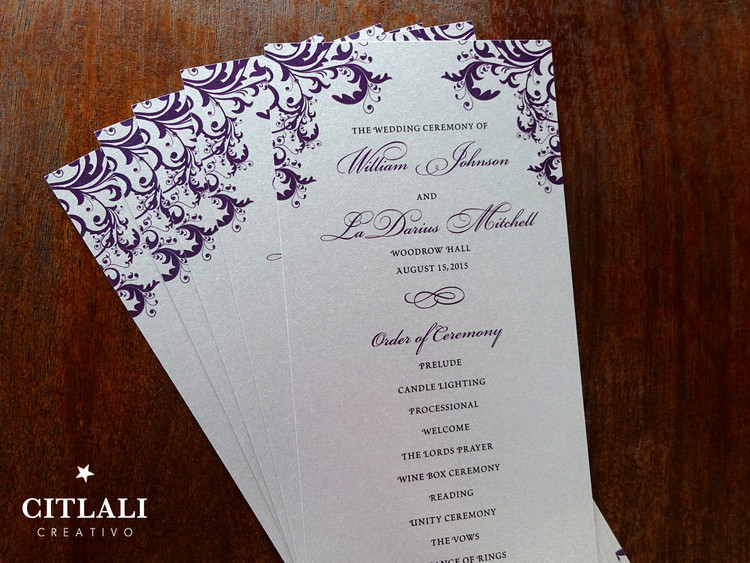 THE WEDDING CEREMONY OF
William Johnson
AND
La Darius Mitchell
WOODROW HALL
AUGUST 15, 2015
Order of Ceremony
PRELUDE
CANDLE LIGHTING
PROCESSIONAL
WELCOME
THE LORDS PRAYER
WINE BOX CEREMONY
READING
UNITY CEREMONY
THE VOWS
OF RINGS
CITLALI
CREATIVO